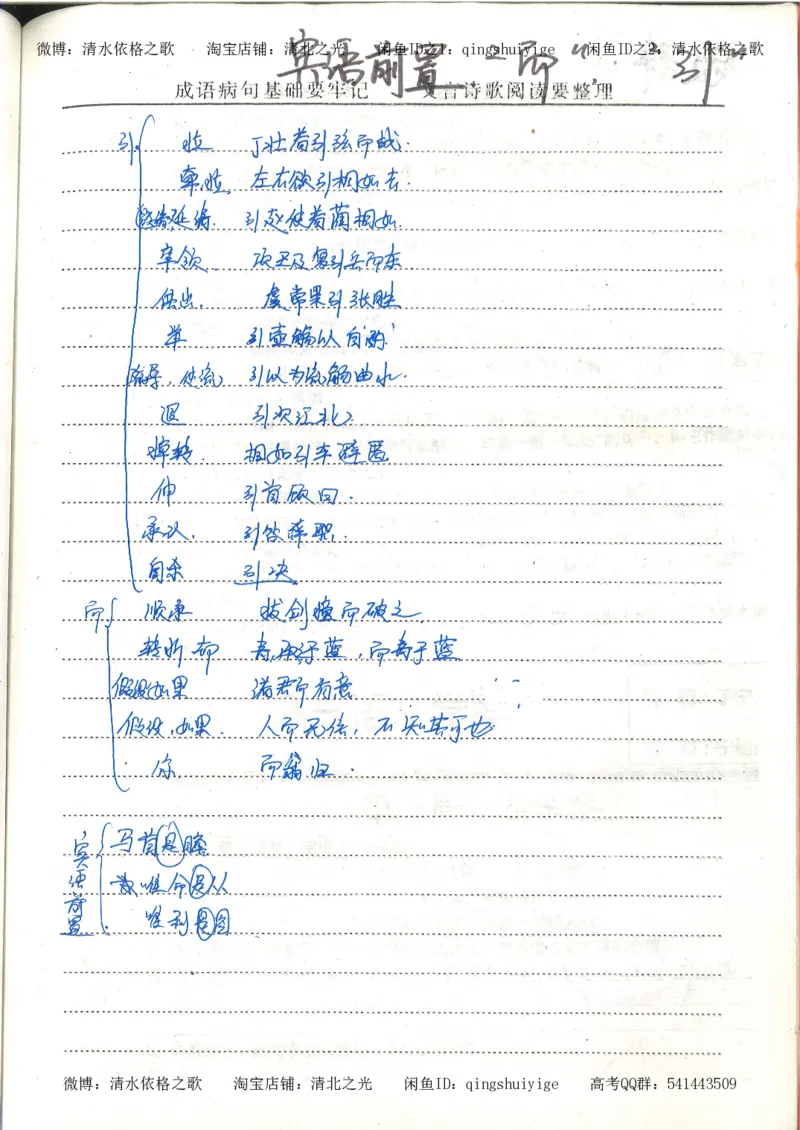 微博：清水依格之歌 淘宝店铺：清北之光 闲鱼ID之1：qingshuiyige 闲鱼ID之2：清水依格之歌
宾语前置 “而” “引”
成语病句基础要牢记 文言诗歌阅读要整理
引 拉 丁壮者引弦而战.
牵拉. 左右欲引相如去.
延请. 引赵使者蔺相如.
率领. 项王乃复引兵而东
供出. 虞常果引张胜
举 引壶觞以自酌
疏导，使流 引以为流觞曲水.
退 引次江北
掉转. 相如引车避匿
伸 引首顾曰.
承认. 引咎辞职.
自杀 引决
而 顺承 拔剑撞而破之.
转折 却 青,取于蓝，而青于蓝
假设如果 诸君而有意
假设,如果. 人而无信，不知其可也
你 而翁归.
宾语前置 马首是瞻
唯命是从
唯利是图
微博：清水依格之歌 淘宝店铺：清北之光 闲鱼ID：qingshuiyige 高考QQ群：541443509